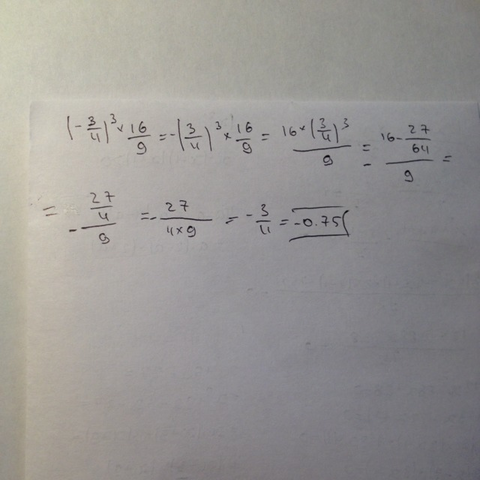 (-3/4)^3 × 16/9 = -(3/4)^3 × 16/9 = 16×(3/4)^3 / 9 = - 16 - 27/64 / 9 =
= - 27/4 / 9 = - 27 / 4×9 = - 3/4 = -0.75